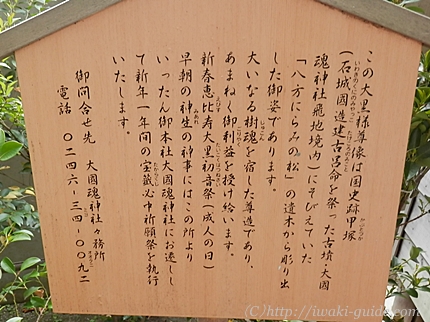 この大黒様尊像は国史跡甲塚
かぶとづか
(石城國造建古呂命を祭った古墳・大國
いわきのくにのみやつこたけころのみこと
魂神社飛地境内)にそびえていた
「八方にらみの松」の遺木から彫り出
した御姿であります。
大いなる樹魂を宿した尊造であり、
じゅこん
あまねく御利益を授け給います。
新春恵比寿大黒初音祭(成人の日)
早朝の神生の神事にはこの所より
いったん御本社大國魂神社にお遷しし
て新年一年間の宝蔵必中祈願祭を執行
いたします。
御問合せ先 大國魂神社々務所
電話 〇二四六-三四-〇〇九二
(C)http://iwaki-guide.com